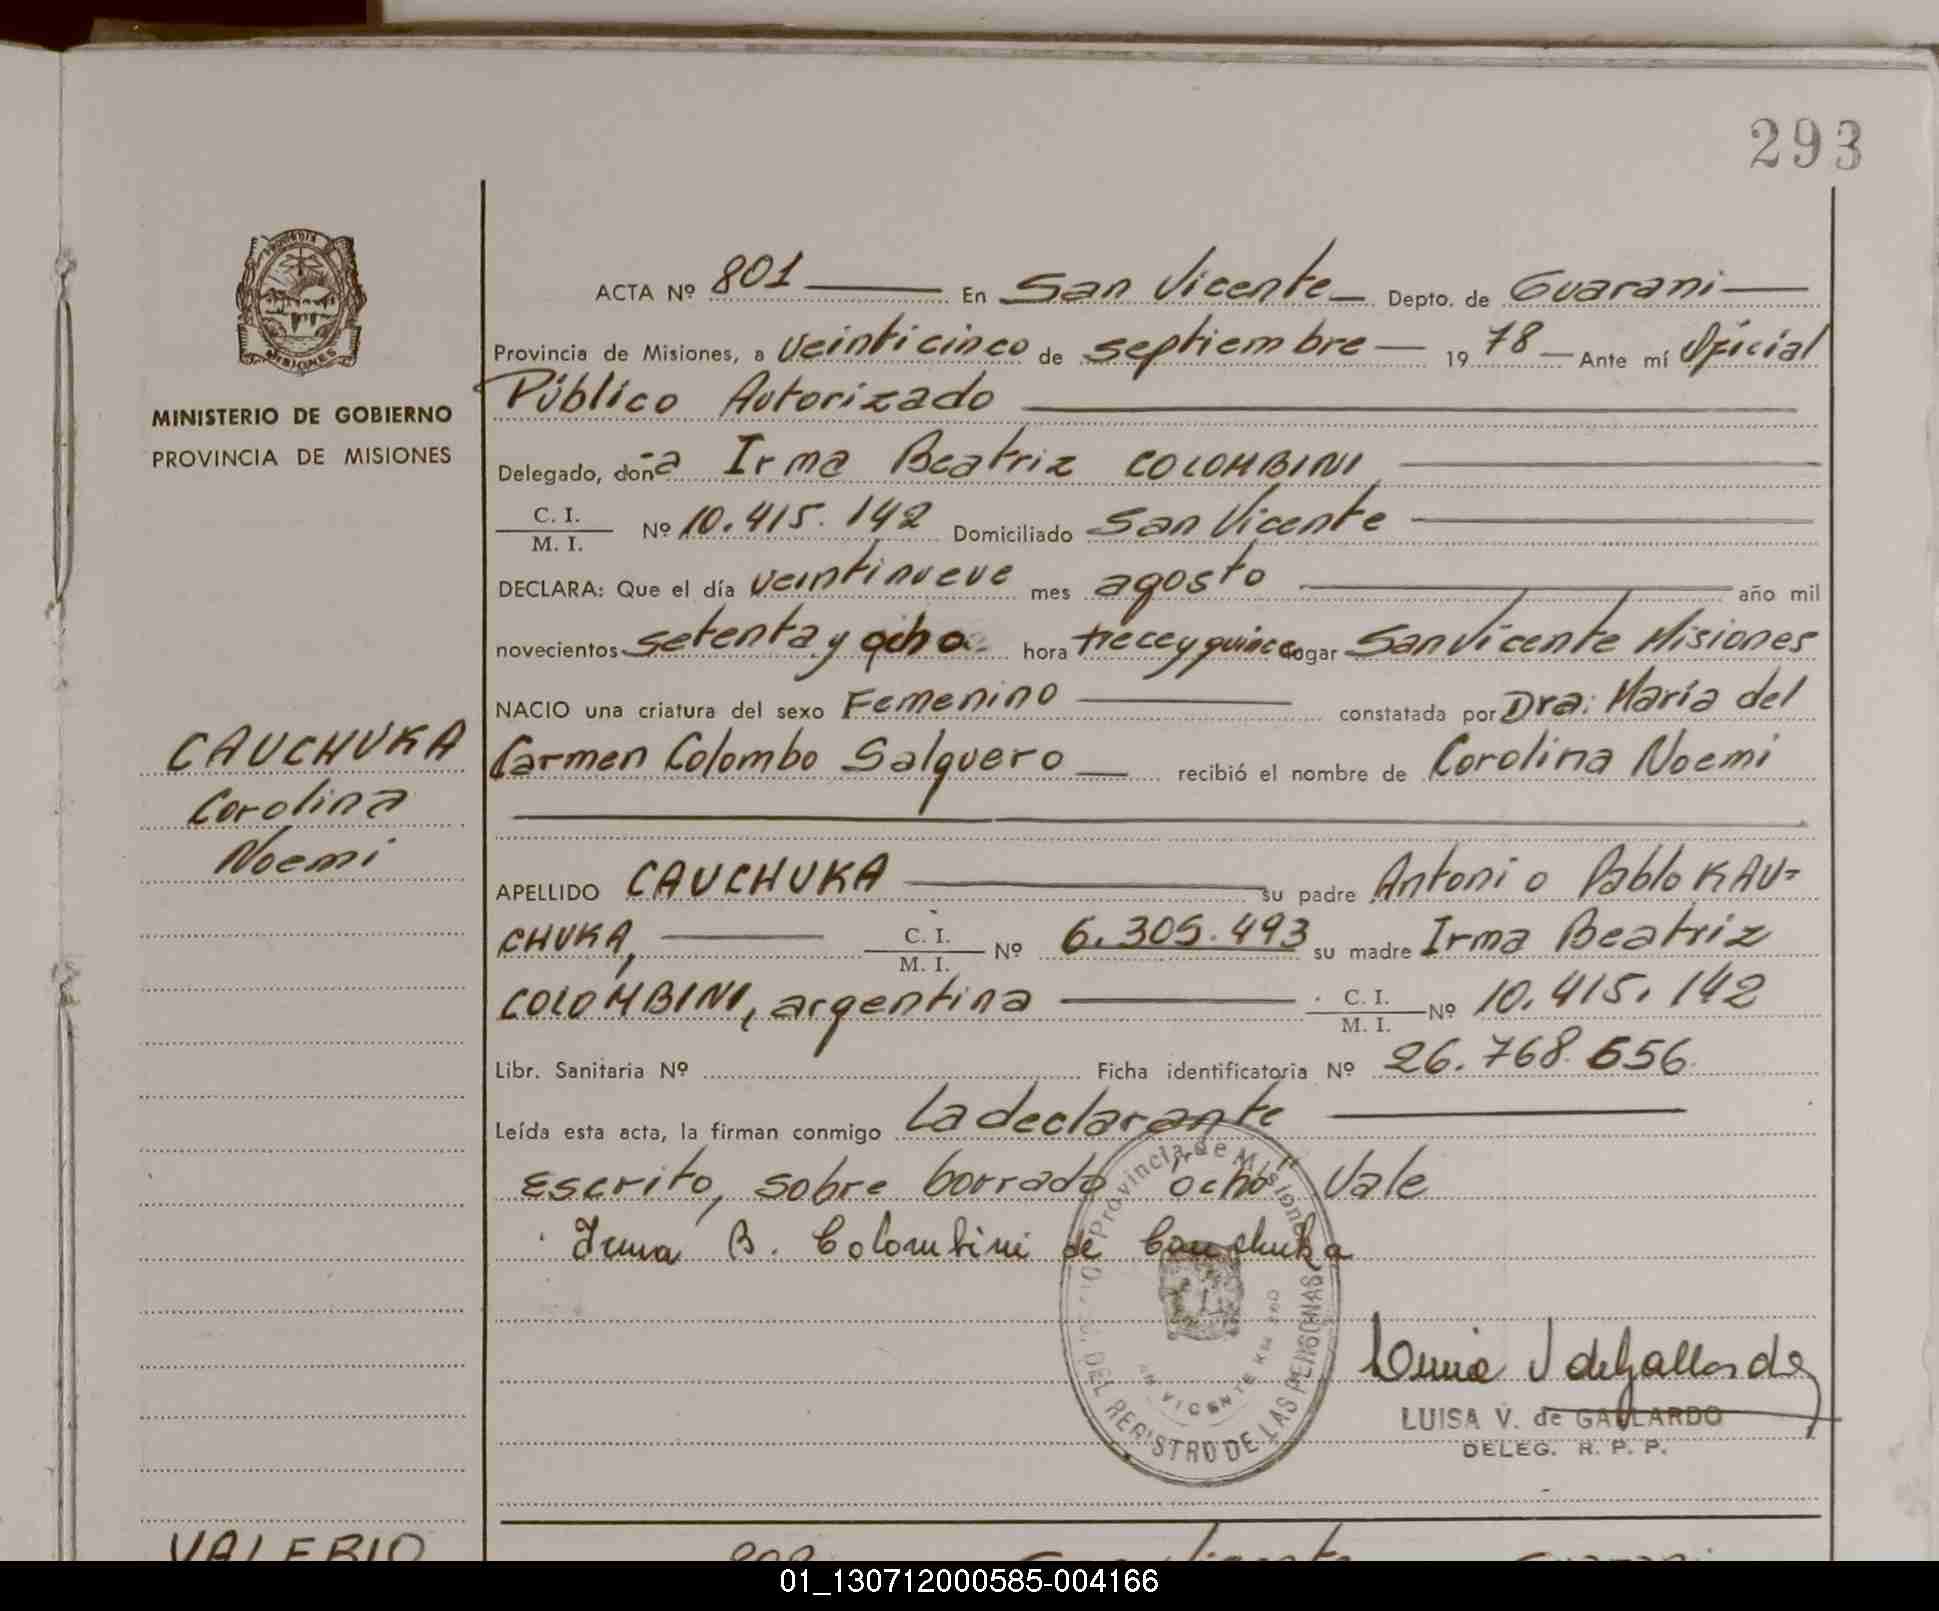 293
PROVINCIA
MISIONES
MINISTERIO DE GOBIERNO
PROVINCIA DE MISIONES
CAUCHUKA
Corolina
Noemi
ACTA Nº 801 En San Vicente Depto. de Guarani
Provincia de Misiones, a veinticinco de septiembre 19 78 Ante mí Oficial
Público Autorizado
Delegado, doña Irma Beatriz COLOMBINI
C. I. / M. I. Nº 10.415.142 Domiciliado San Vicente
DECLARA: Que el día veintinueve mes agosto año mil
novecientos setenta y ocho hora trece y quince lugar San Vicente Misiones
NACIO una criatura del sexo Femenino constatada por Dra: María del
Carmen Colombo Salguero recibió el nombre de Corolina Noemi
APELLIDO CAUCHUKA su padre Antonio Pablo KAU=
CHUKA, C. I. / M. I. Nº 6.305.493 su madre Irma Beatriz
COLOMBINI, argentina C. I. / M. I. Nº 10.415.142
Libr. Sanitaria Nº Ficha identificatoria Nº 26.768.656
Leída esta acta, la firman conmigo La declarante
Escrito, sobre borrado "ocho" Vale
Irma B. Colombini de Cauchuka
Provincia de Misiones
DEL REGISTRO DE LAS PERSONAS
SAN VICENTE KM
LUISA V. de GALLARDO
DELEG. R. P. P.
VALERIO
802 San Vicente Guarani
01_130712000585-004166